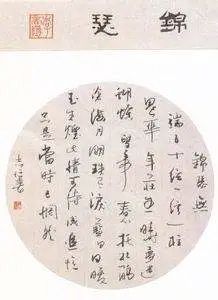 錦瑟
錦瑟無
端五十絃一絃一柱
思華年莊生曉夢迷
蝴蝶望帝春心托杜鵑
滄海月明珠有淚藍田日暖
玉生煙此情可待成追憶
只是當時已惘然
書